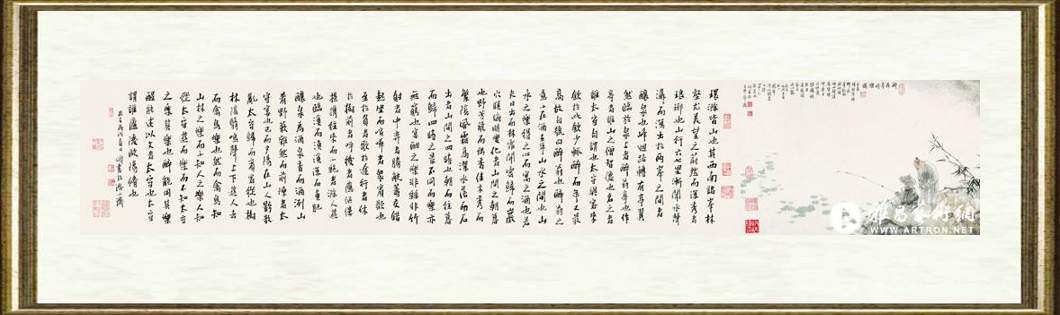 環滁皆山也其西南諸峯林
壑尤美望之蔚然而深秀者
瑯琊也山行六七里漸聞水聲
潺潺而瀉出於兩峯之間者
釀泉也峰迴路轉有亭翼
然臨於泉上者醉翁亭也作
亭者誰山之僧智僊也名之者
誰太守自謂也太守與客來
飲於此飲少輒醉而年又最
高故自號曰醉翁也醉翁之
意不在酒在乎山水之間也山
水之樂得之心而寓之酒也若
夫日出而林霏開雲歸而巖
穴暝晦明變化者山間之朝暮
也野芳發而幽香佳木秀而
繁陰風霜高潔水落而石
出者山間之四時也朝而往暮
而歸四時之景不同而樂亦
無窮也宴酣之樂非絲非竹
射者中弈者勝觥籌交錯
起坐而喧嘩者眾賓歡也
至於負者歌於途行者休
於樹前者呼後者應傴僂
提攜往來而不絕者滁人遊
也臨溪而漁溪深而魚肥
釀泉為酒泉香而酒洌山
肴野蔌雜然而前陳者太
守宴也已而夕陽在山人影散
亂太守歸而賓客從也樹
林陰翳鳴聲上下遊人去
而禽鳥樂也然禽鳥知
山林之樂而不知人之樂人知
從太守遊而樂而不知太守
之樂其樂也醉能同其樂
醒能述以文者太守也太守
謂誰廬陵歐陽脩也
雅昌艺术網
WWW.ARTRON.NET